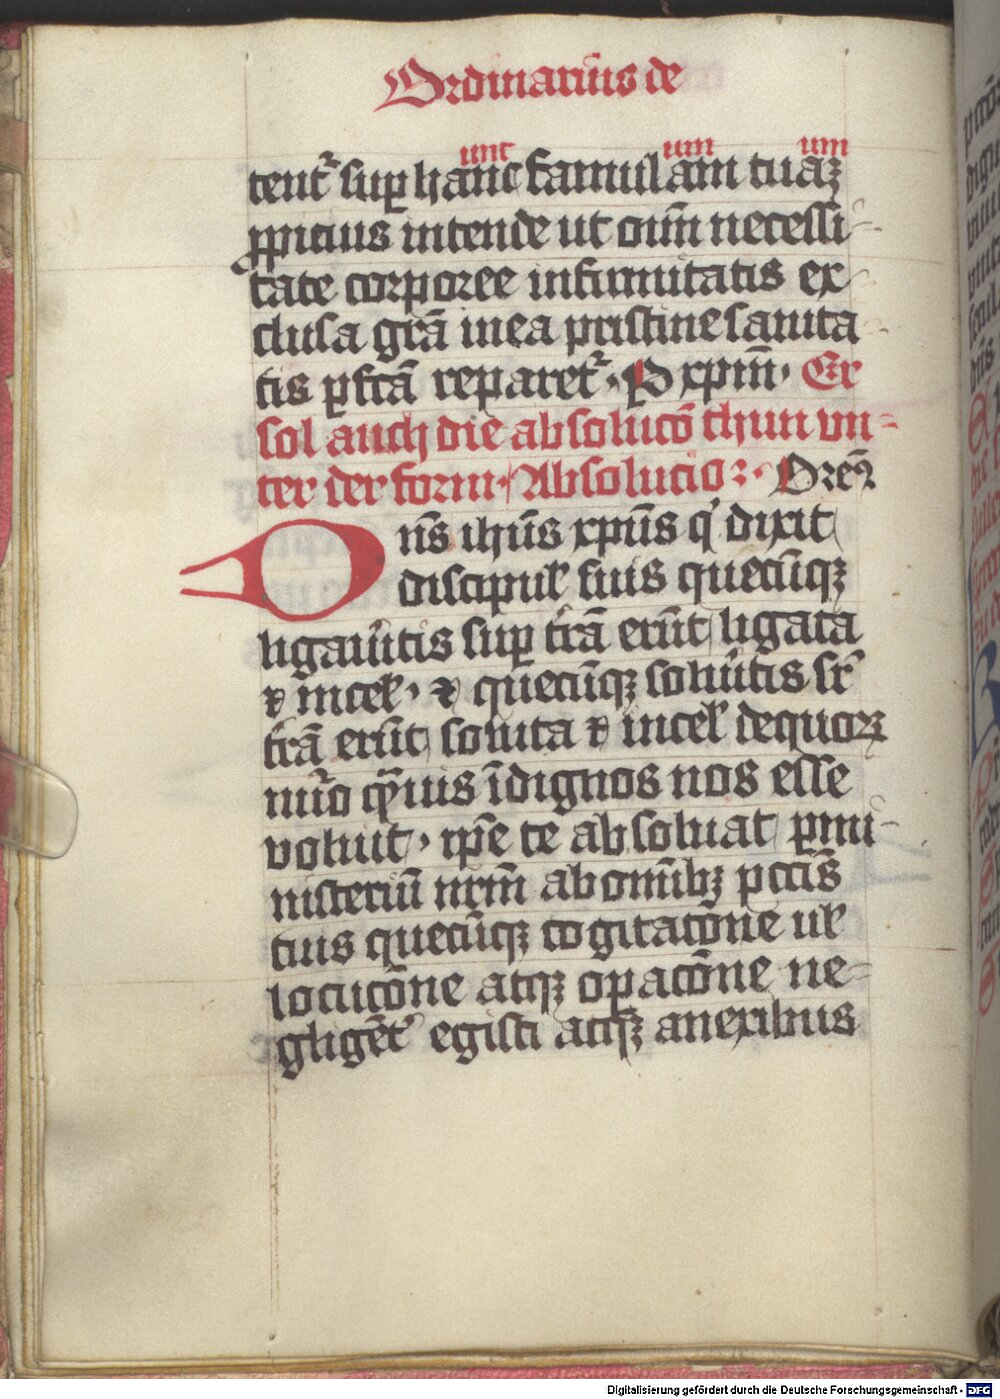 Ordinariūs de
unc um um
tent᷑ sup hanc famulam tuaꝫ
ꝓpicius intende ut oīm necessi
tate corporee infirmitatis ex
clusa grā mea pristine sanita
tis ꝑfcā reparet᷑. P xpm̄. Er
sol auch die absolucō thun vn
ter der form. Absolucio: Orem⁹
Dn̄s ihūs xpūs q' dixit
discipul' suis quecūqꝫ
ligau'itis sup t'rā erūt ligata
⁊ in cel'. ⁊ quecūqꝫ solu'itis sr̄
t'rā erūt soluta ⁊ in cel' de quorꝫ
nūo q̄uis īdignos nos esse
voluit, ip̄e te absoluat ꝑ mi
nisteriū nr̄m ab om̄ibꝫ pccīs
tuis quecūqꝫ cogitacōne ul'
locucōne atqꝫ oꝑacōne ne
gligēt' egisti atqꝫ a nexibus
Digitalisierung gefördert durch die Deutsche Forschungsgemeinschaft - DFG